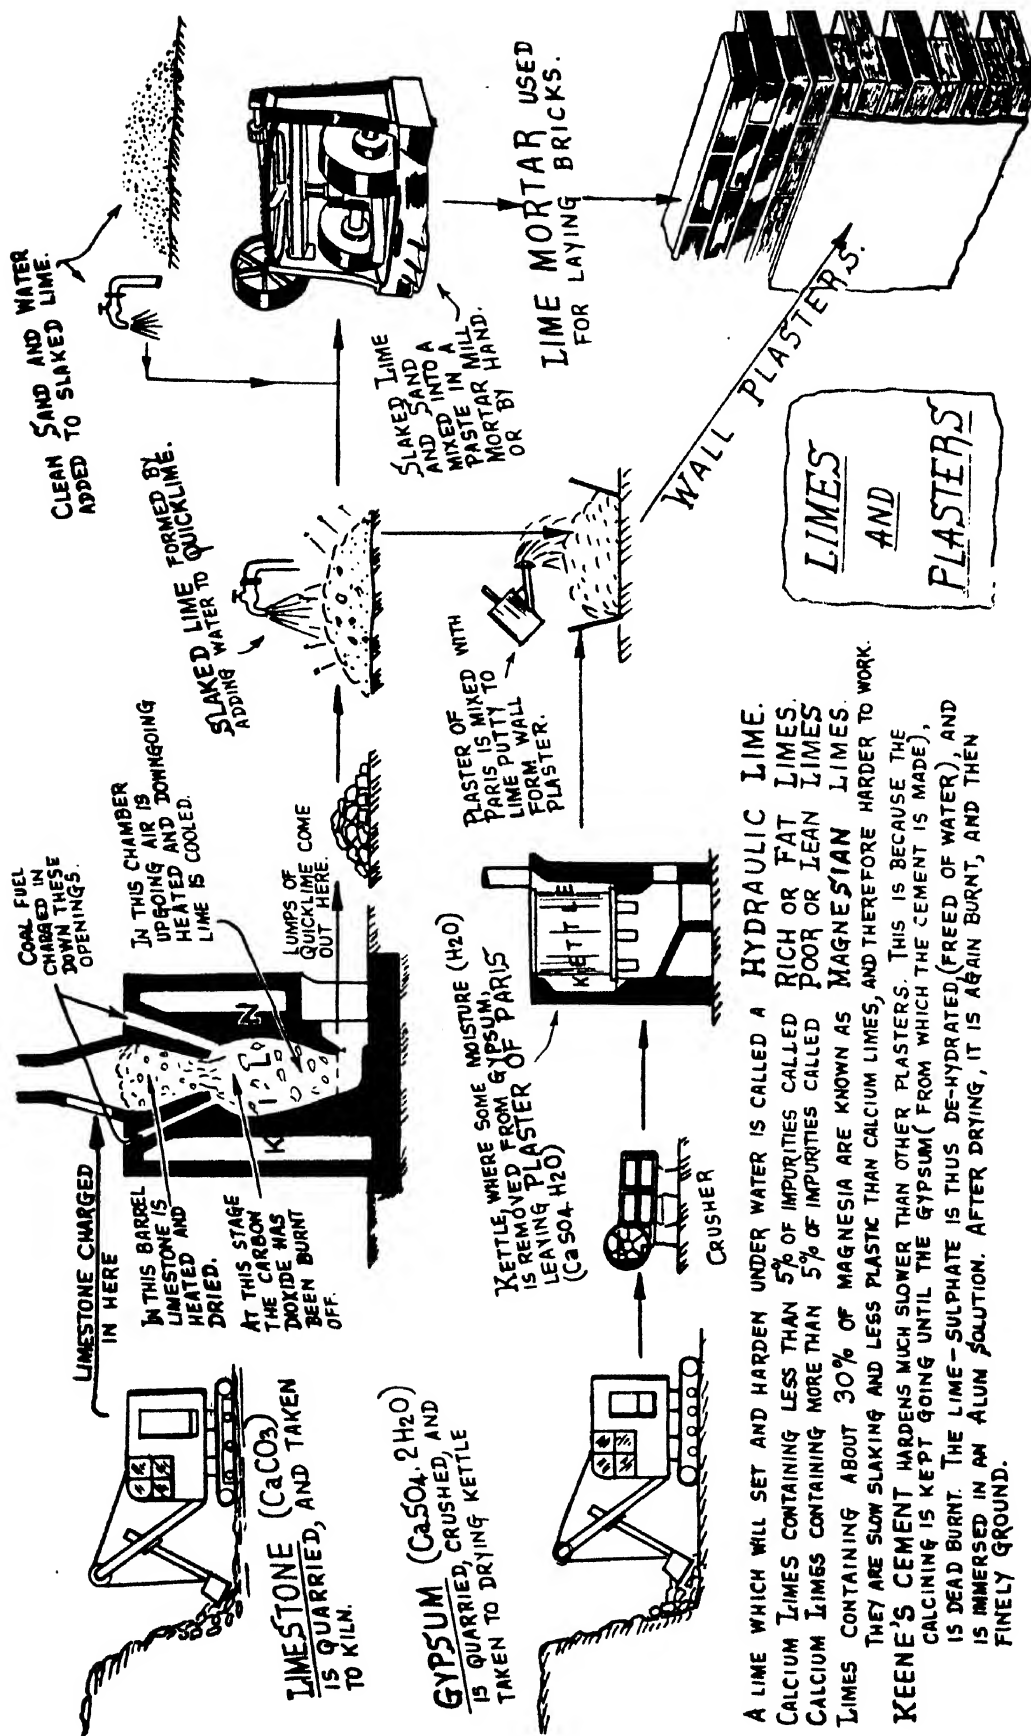 LIMESTONE (CaCO3)
IS QUARRIED, AND TAKEN
TO KILN.
LIMESTONE CHARGED
IN HERE
IN THIS BARREL
LIMESTONE IS
HEATED AND
DRIED.
AT THIS STAGE
THE CARBON
DIOXIDE HAS
BEEN BURNT
OFF.
COAL FUEL
CHARGED IN
DOWN THESE
OPENINGS.
IN THIS CHAMBER
UPGOING AIR IS
HEATED AND DOWNGOING
LIME IS COOLED.
KILN
LUMPS OF
QUICKLIME COME
OUT HERE.
SLAKED LIME FORMED BY
ADDING WATER TO QUICKLIME.
CLEAN SAND AND WATER
ADDED TO SLAKED LIME.
SLAKED LIME
AND SAND
MIXED INTO A
PASTE IN A
MORTAR MILL
OR BY HAND.
LIME MORTAR USED
FOR LAYING BRICKS.
GYPSUM (CaSO4.2H2O)
IS QUARRIED, CRUSHED, AND
TAKEN TO DRYING KETTLE
CRUSHER
KETTLE, WHERE SOME MOISTURE (H2O)
IS REMOVED FROM GYPSUM,
LEAVING PLASTER OF PARIS
(CaSO4.H2O)
KETTLE
PLASTER OF
PARIS IS MIXED WITH
LIME PUTTY TO
FORM WALL
PLASTER.
WALL PLASTERS.
LIMES
AND
PLASTERS
A LIME WHICH WILL SET AND HARDEN UNDER WATER IS CALLED A HYDRAULIC LIME.
CALCIUM LIMES CONTAINING LESS THAN 5% OF IMPURITIES CALLED RICH OR FAT LIMES.
CALCIUM LIMES CONTAINING MORE THAN 5% OF IMPURITIES CALLED POOR OR LEAN LIMES
LIMES CONTAINING ABOUT 30% OF MAGNESIA ARE KNOWN AS MAGNESIAN LIMES.
THEY ARE SLOW SLAKING AND LESS PLASTIC THAN CALCIUM LIMES, AND THEREFORE HARDER TO WORK.
KEENE'S CEMENT HARDENS MUCH SLOWER THAN OTHER PLASTERS. THIS IS BECAUSE THE
CALCINING IS KEPT GOING UNTIL THE GYPSUM (FROM WHICH THE CEMENT IS MADE),
IS DEAD BURNT. THE LIME-SULPHATE IS THUS DE-HYDRATED, (FREED OF WATER), AND
IS IMMERSED IN AN ALUM SOLUTION. AFTER DRYING, IT IS AGAIN BURNT, AND THEN
FINELY GROUND.